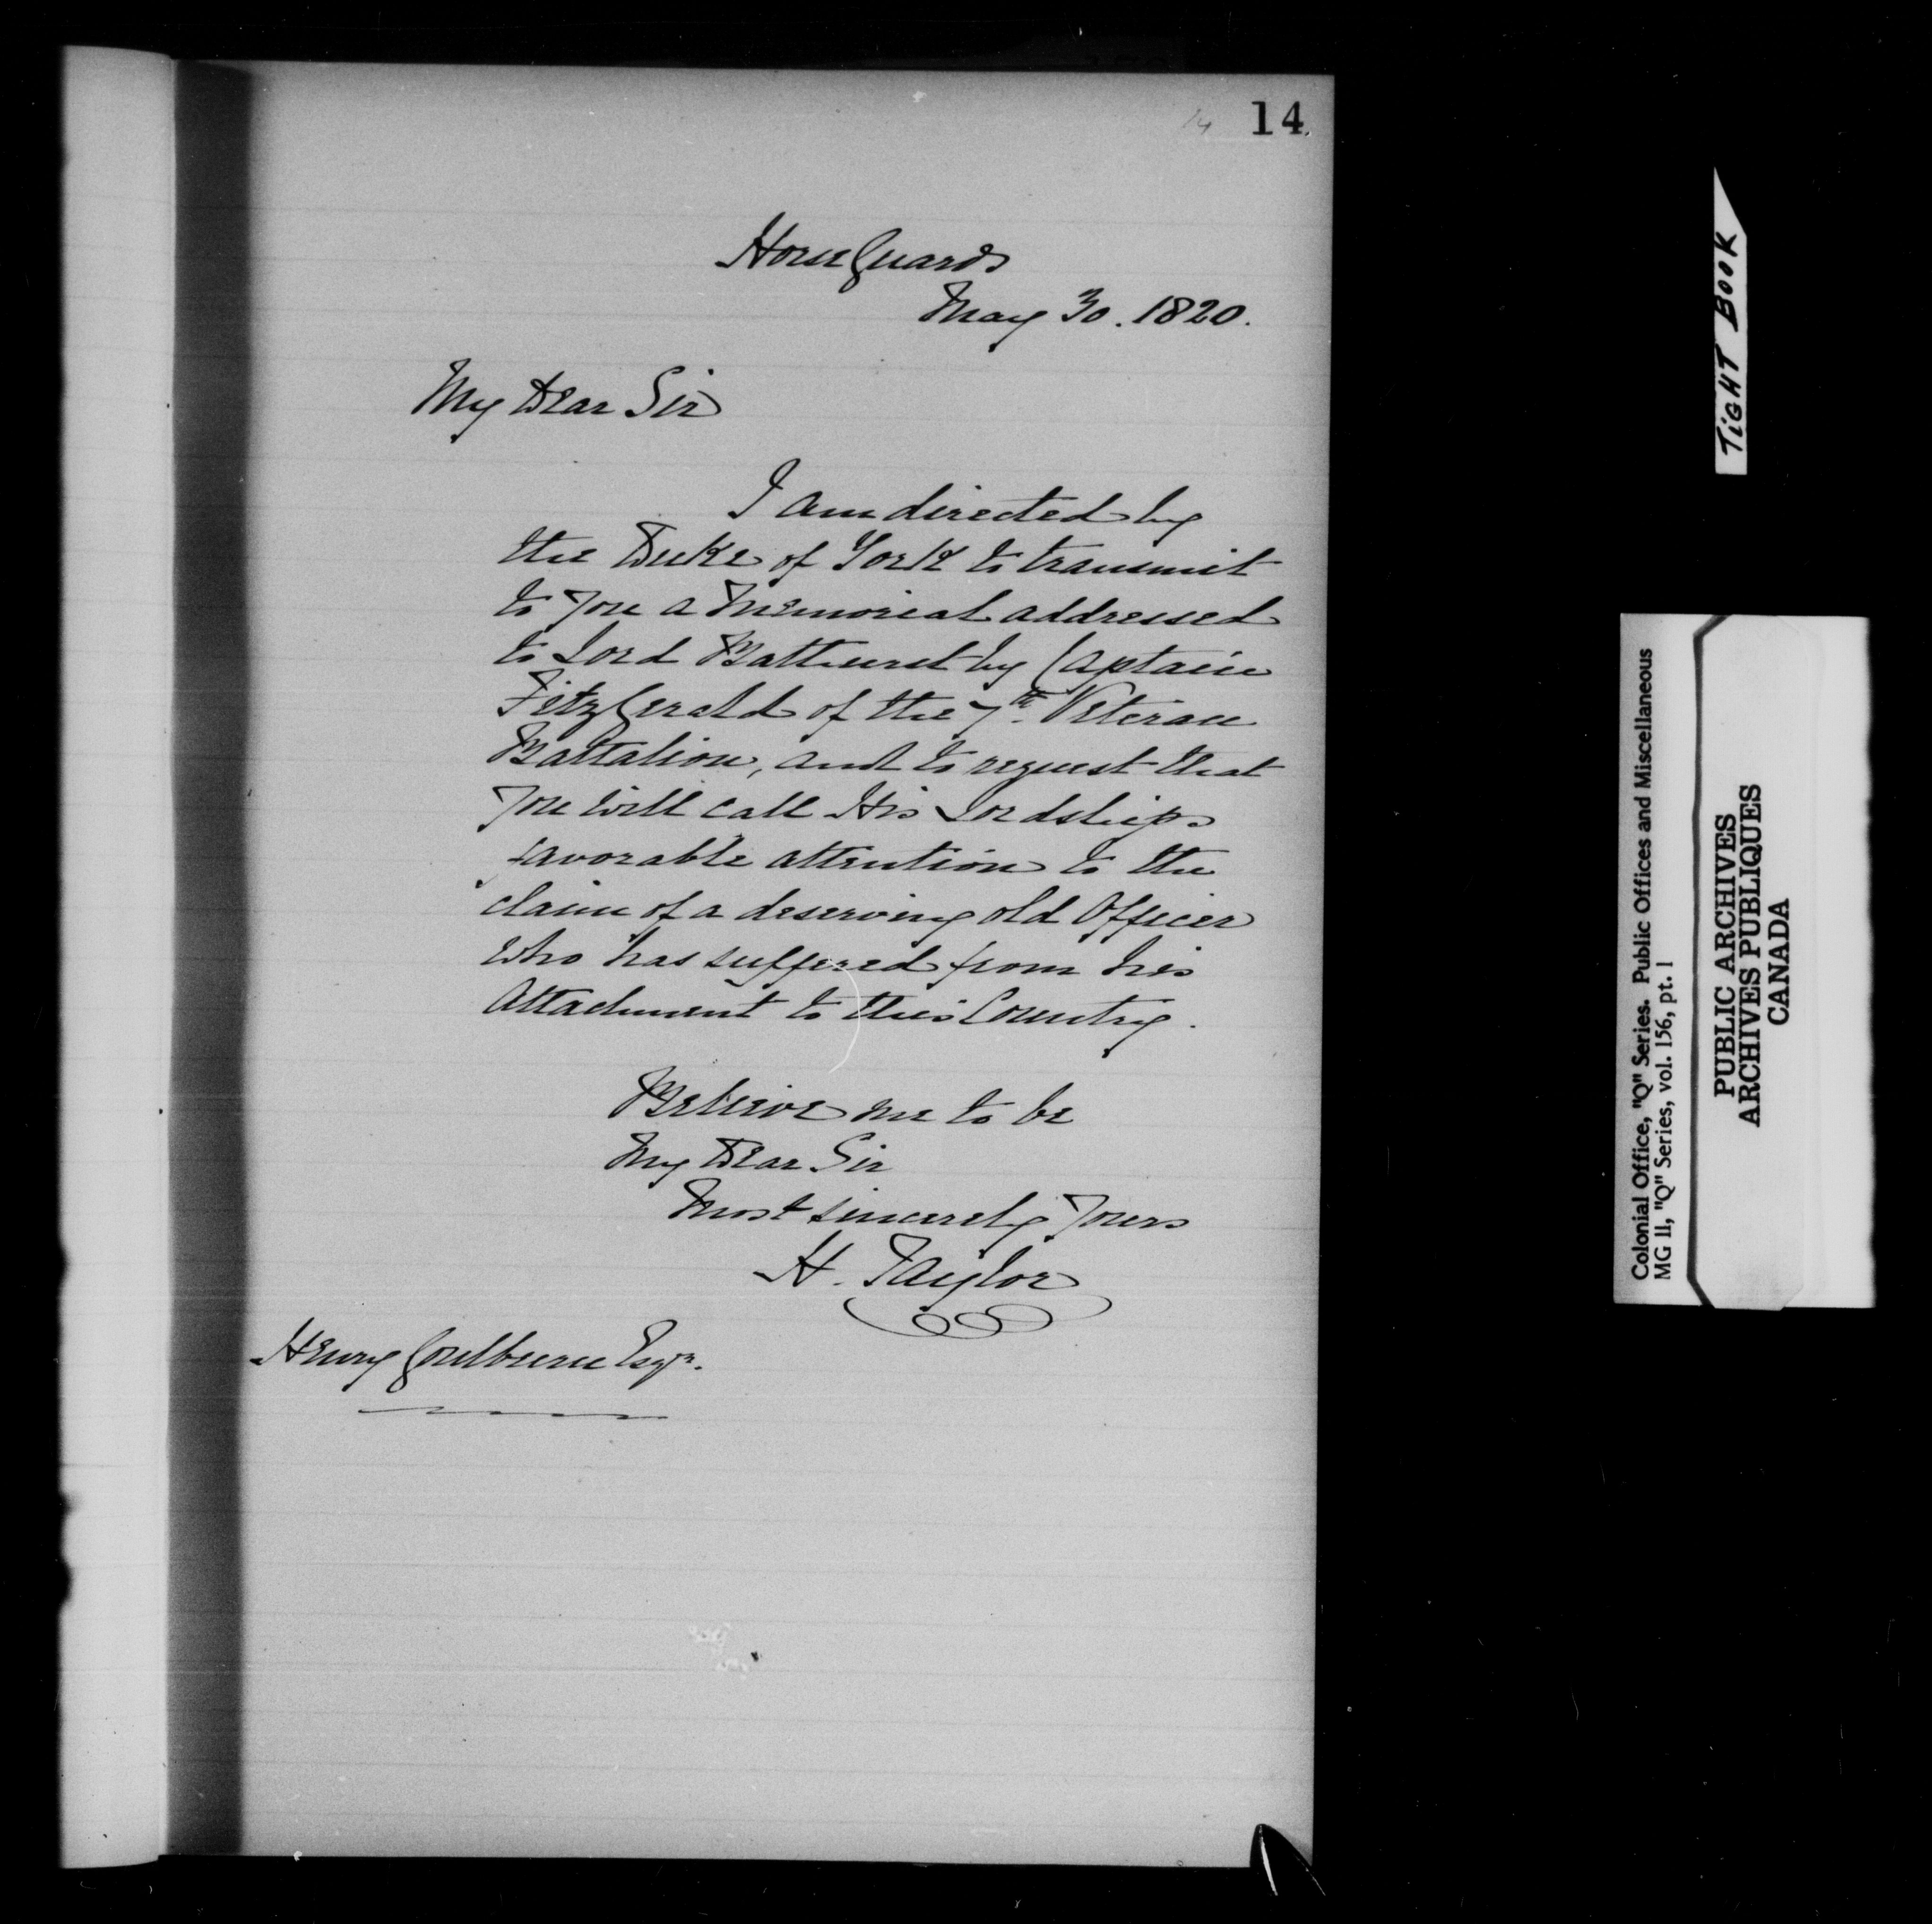 14 14
Horse Guards
May 30. 1820.
My Dear Sir
I am directed by
the Duke of York to transmit
to you a Memorial addressed
to Lord Bathurst by Captain
FitzGerald of the 7th. Veteran
Battalion, and to request that
you will call His Lordships
favorable attention to the
claim of a deserving old Officer
who has suffered from his
Attachment to this Country.
Believe me to be
My Dear Sir
Most sincerely Yours
H. Taylor
Henry Goulburn Esqr.
TIGHT BOOK
Colonial Office, "Q" Series. Public Offices and Miscellaneous
MG 11, "Q" Series, vol. 156, pt. 1
PUBLIC ARCHIVES
ARCHIVES PUBLIQUES
CANADA